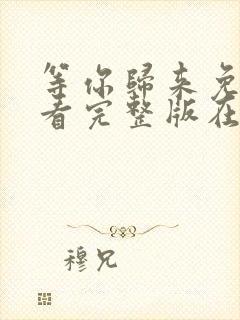 等你歸来免
看完整版在
穆兄